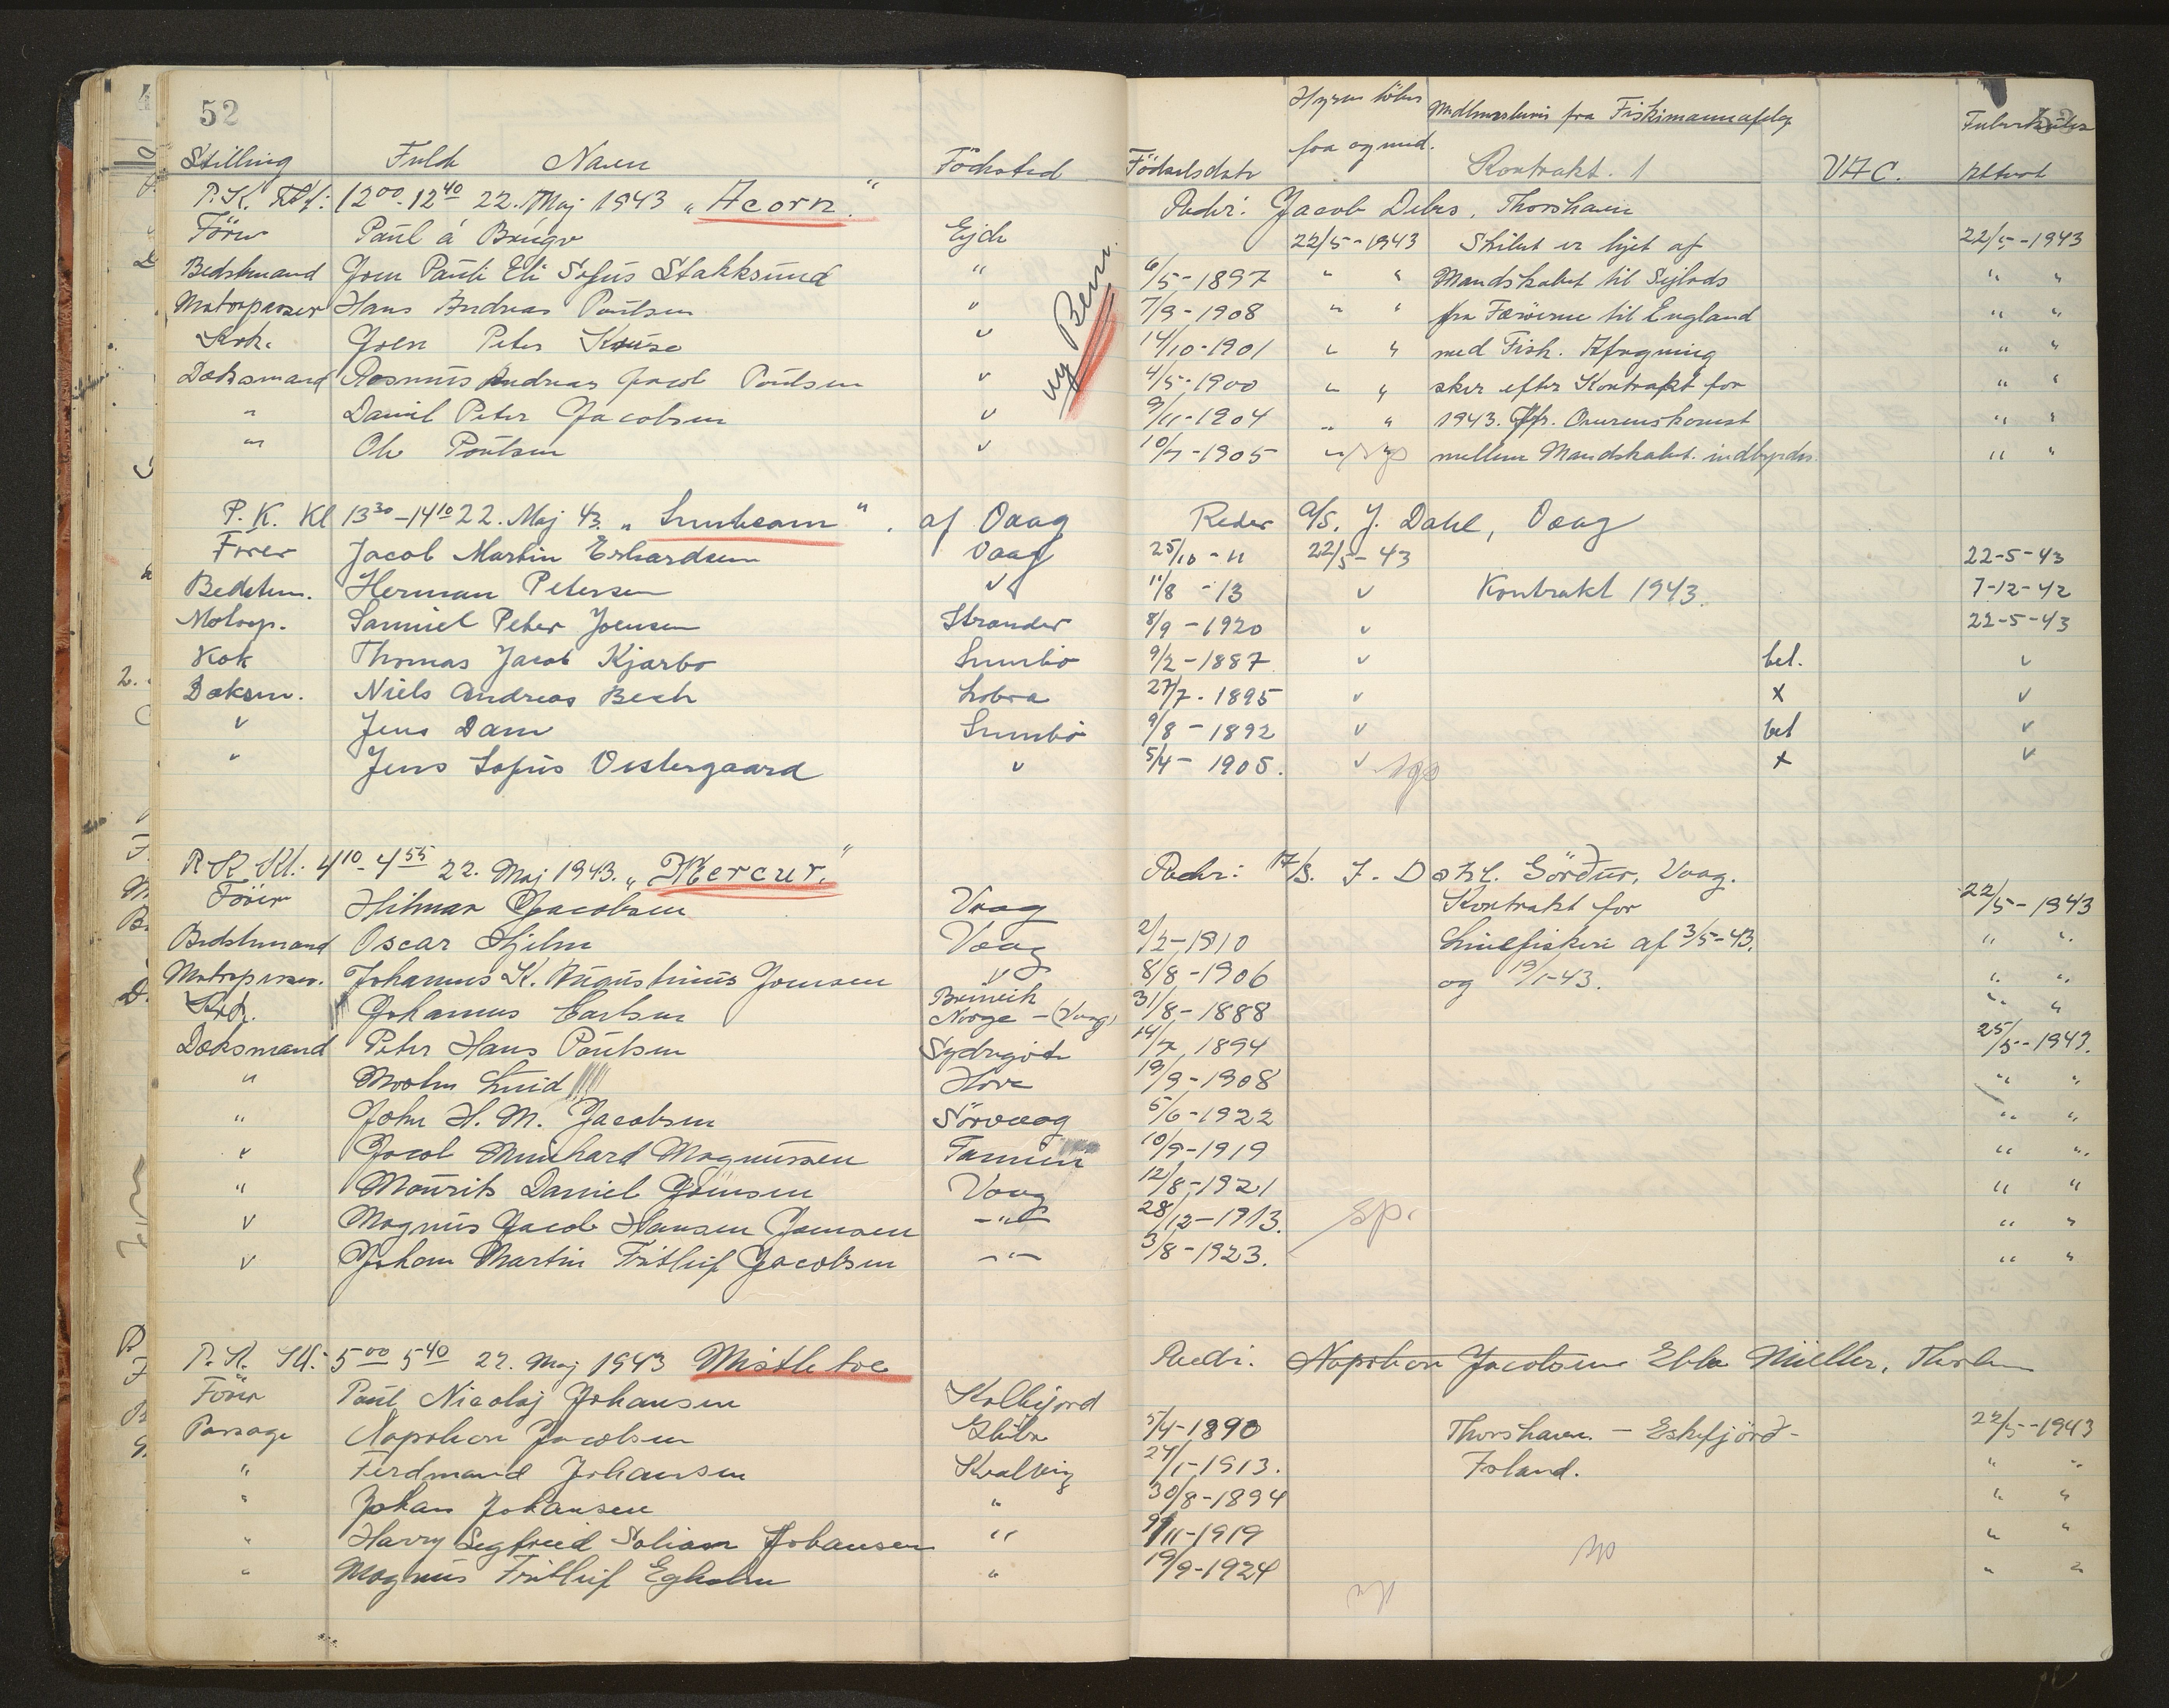 52
Stilling Fulde Navn Födested Födselsdato Hyren löber fra og med. Medlemsbevis fra Fiskimannafelag Kontrakt. 1 VAC. Tuberkulose Attest
P.K. Kl: 12 00 - 12 40 22. Maj 1943 "Acorn" Reder: Jacob Debes, Thorshavn
Förer Paul á Brúgv Ejde 22/5-1943 Skibet er lejet af 22/5-1943
Bedstemand Joen Pauli Eli Sofus Stakksund " 6/5-1897 " " Mandskabet til Sejlads " "
Motorpasser Hans Andreas Poulsen " 7/9-1908 " " fra Færöerne til England " "
Kok. Joen Peter Kruse " 14/10-1901 " " med Fisk. Afløgning " "
Dæksmand Rasmus Andreas Jacob Poulsen " 4/5-1900 " " sker efter Kontrakt for " "
" Daniel Peter Jacobsen " 9/11-1904 " " 1943. Jfr. Overenskomst " "
" Ole Poulsen " 10/7-1905 " mellem Mandskabet indbyrdes. " "
P.K. Kl 13 30 - 14 10 22. Maj 43. "Sunbeam". af Vaag Reder A/S. J. Dahl, Vaag
Fører Jacob Martin Erhardsen Vaag 25/10-11 22/5-43 22-5-43
Bedstem. Herman Petersen " 11/8-13 " Kontrakt 1943. 7-12-42
Motorp. Samuel Peter Joensen Strander 8/9-1920 " 22-5-43
Kok Thomas Jacob Kjærbo Sumbø 9/2-1887 " bet. "
Dæksm. Niels Andreas Bech Lobra 27/7-1895 " x "
" Jens Dam Sumbø 9/8-1892 " bet "
" Jens Sofus Vestergaard " 5/4-1905. " x "
P.K. Kl: 4 10 - 4 55 22. Maj 1943. "Mercur." Reder: A/S. J. Dahl. Vaag.
Förer Hilmar Jacobsen Vaag Kontrakt for 22/5-1943
Bedstemand Oscar Hjelm Vaag 2/2-1910 Linefiskeri af 3/5-43. " "
Motorpasser. Johannes K. Augustinus Joensen " 8/8-1906 og 19/1-43. " "
Kok. Johannes Carlsen Norge - (Vaag) 31/8-1888 " "
Dæksmand Peter Hans Poulsen Sydrugöte 14/7 1894 25/5-1943.
" Luid Hove 19/9-1908 " "
" John H. M. Jacobsen Sörvaag 5/6-1922 " "
" Jacob Meinhard Magnussen 10/9-1919 " "
" Mourits Daniel Joensen Vaag 12/8-1921 " "
" Magnus Jacob Hansen Joensen -"- 28/12-1913. " "
" Johan Martin Fritleif Jacobsen -"- 3/8-1923. " "
P.K. Kl: 5 00 5 40 22. Maj 1943 Mistletoe Reder. Napoleon Jacobsen Ebba Müller, Thorshavn
Förer Paul Nicolaj Johansen Kolbejord
Passager Napoleon Jacobsen Glibre 5/4-1890 Thorshavn. - Eskefjörd- 22/5-1943
" Ferdinand Johansen Kvalvig 27/1-1913. Island. " "
" Johan Johansen " 30/8-1894 " "
" Harry Segfried Johansen " /11-1919 " "
" Magnus Fritleif Egholm " 19/9-1924 " "